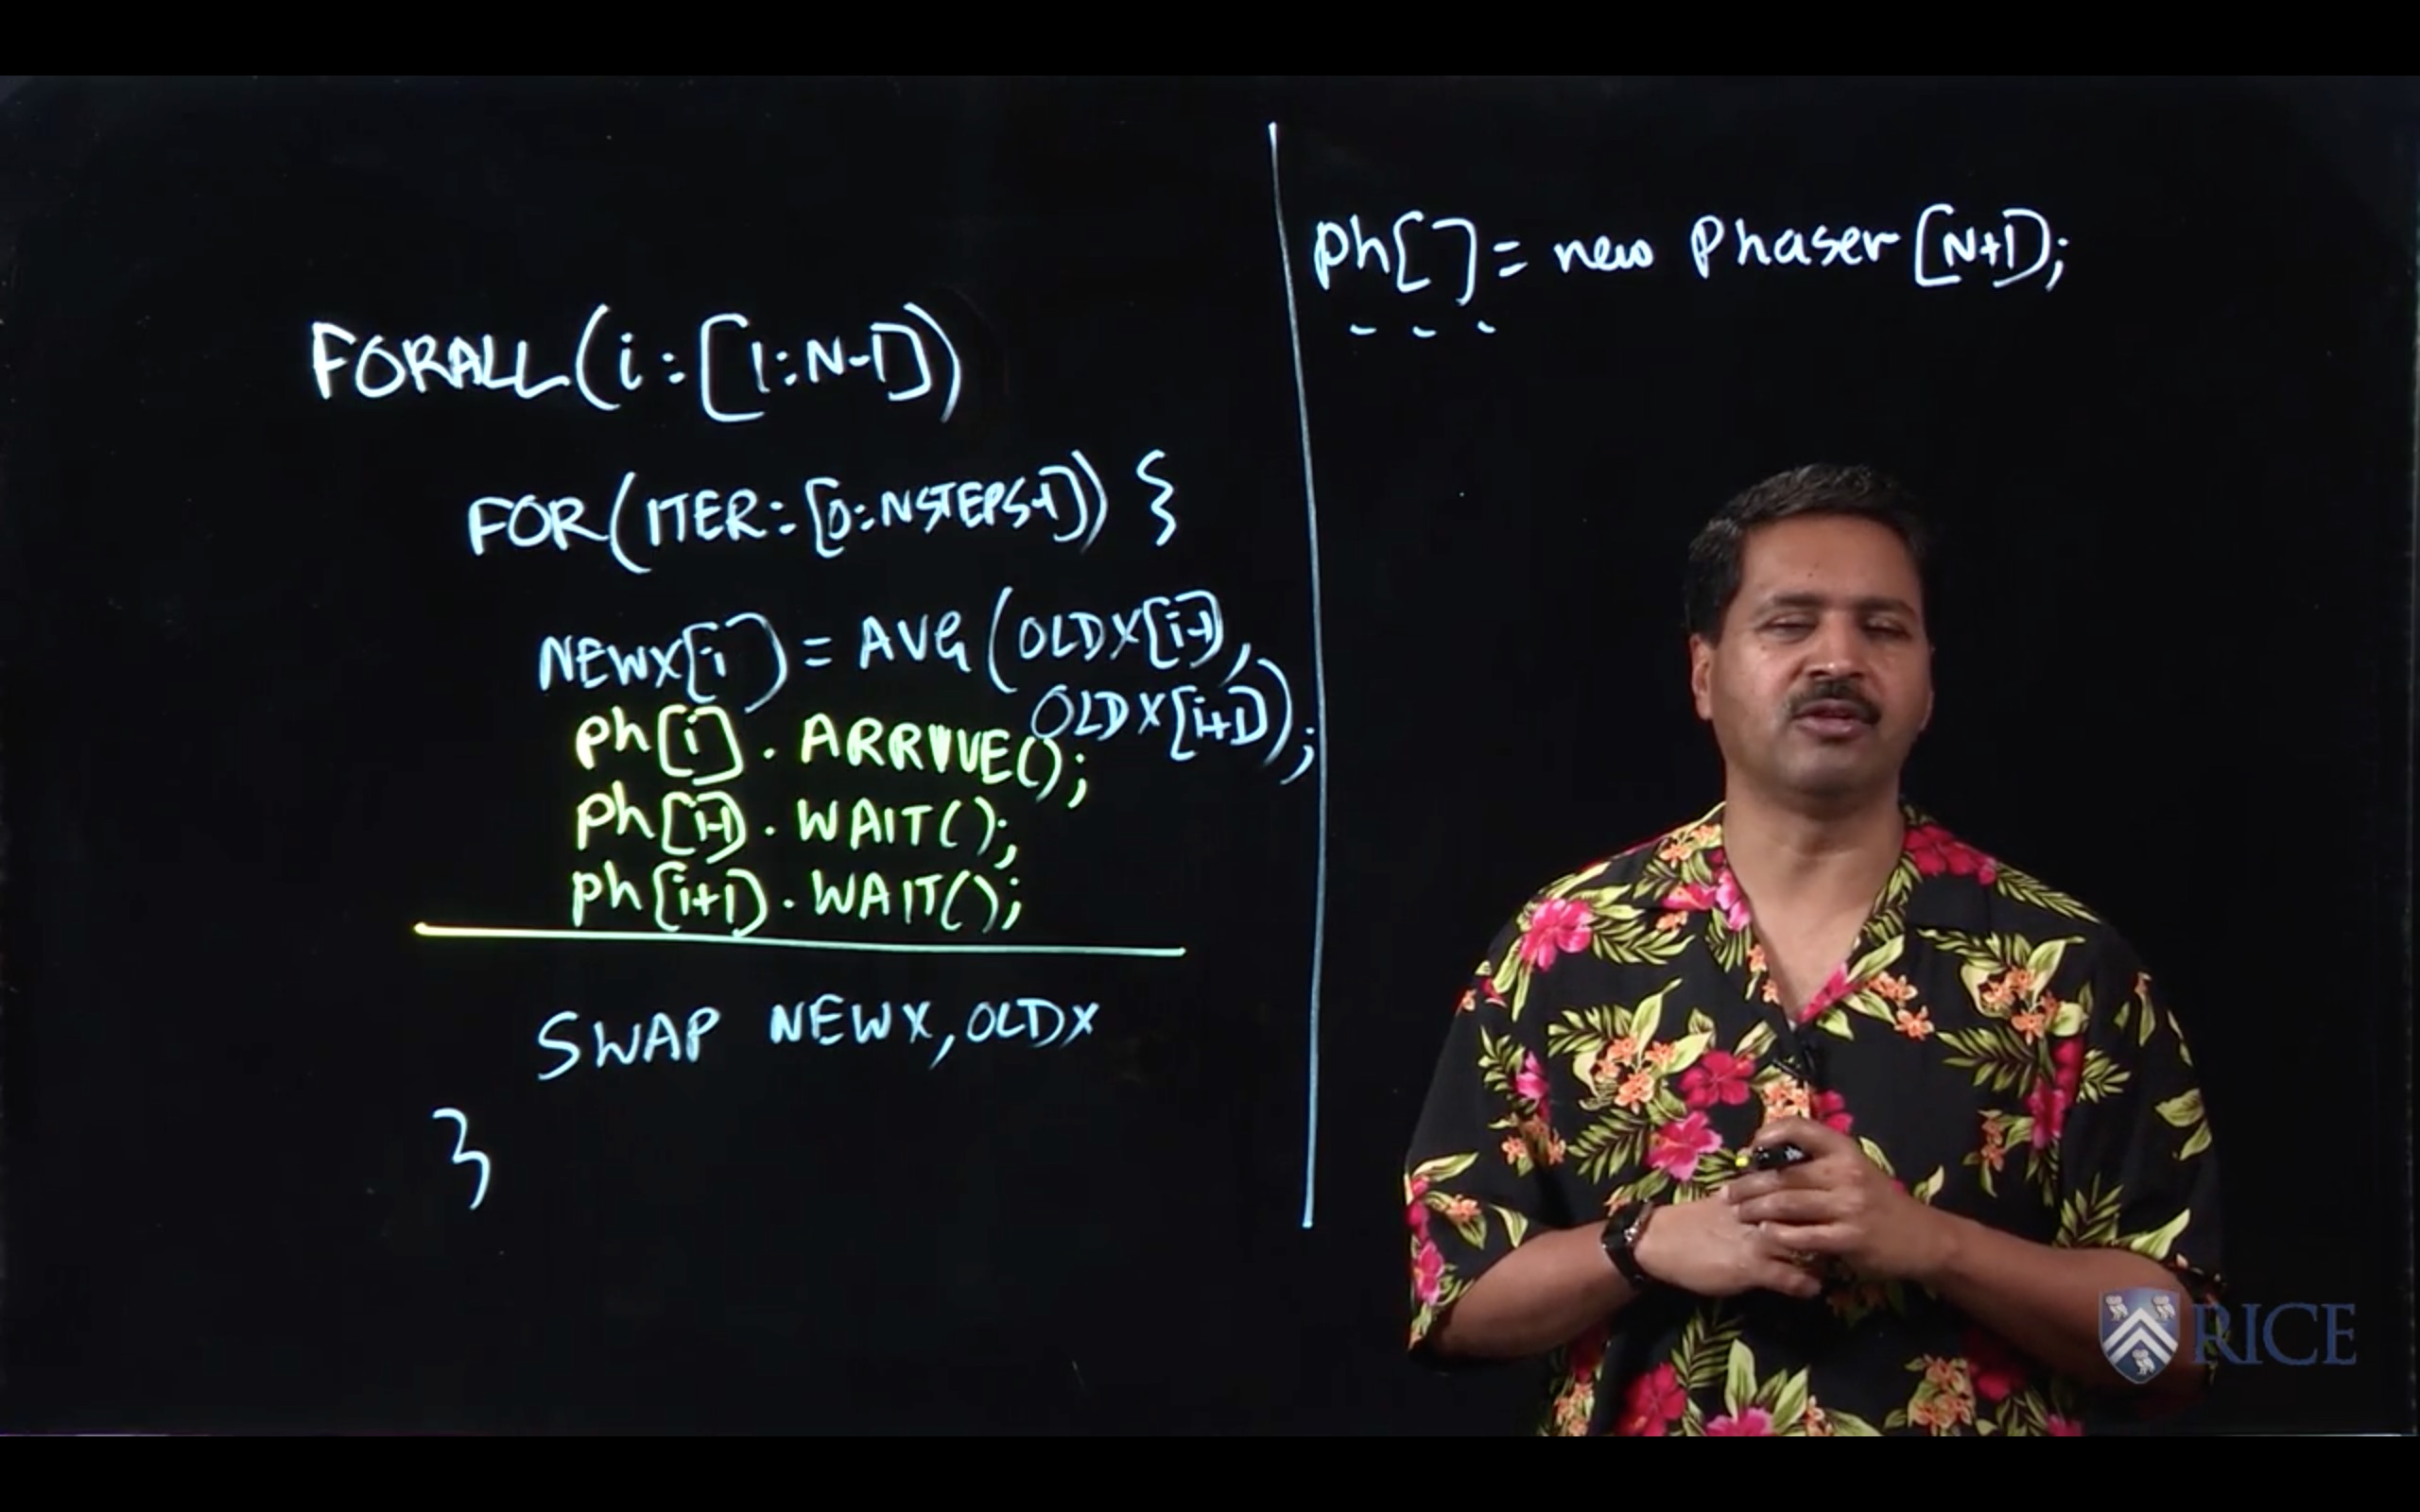 FORALL(i:[1:N-1])
FOR(ITER:[0:NSTEPS-1]) {
NEWX[i] = AVG(OLDX[i-1],
OLDX[i+1]);
ph[i].ARRIVE();
ph[i-1].WAIT();
ph[i+1].WAIT();
SWAP NEWX, OLDX
}
ph[] = new Phaser[N+1];
RICE